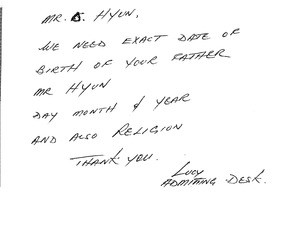 MR. G. HYUN,
WE NEED EXACT DATE OF
BIRTH OF YOUR FATHER
MR HYUN
DAY MONTH & YEAR
AND ALSO RELIGION
THANK YOU.
LUCY
ADMITTING DESK.